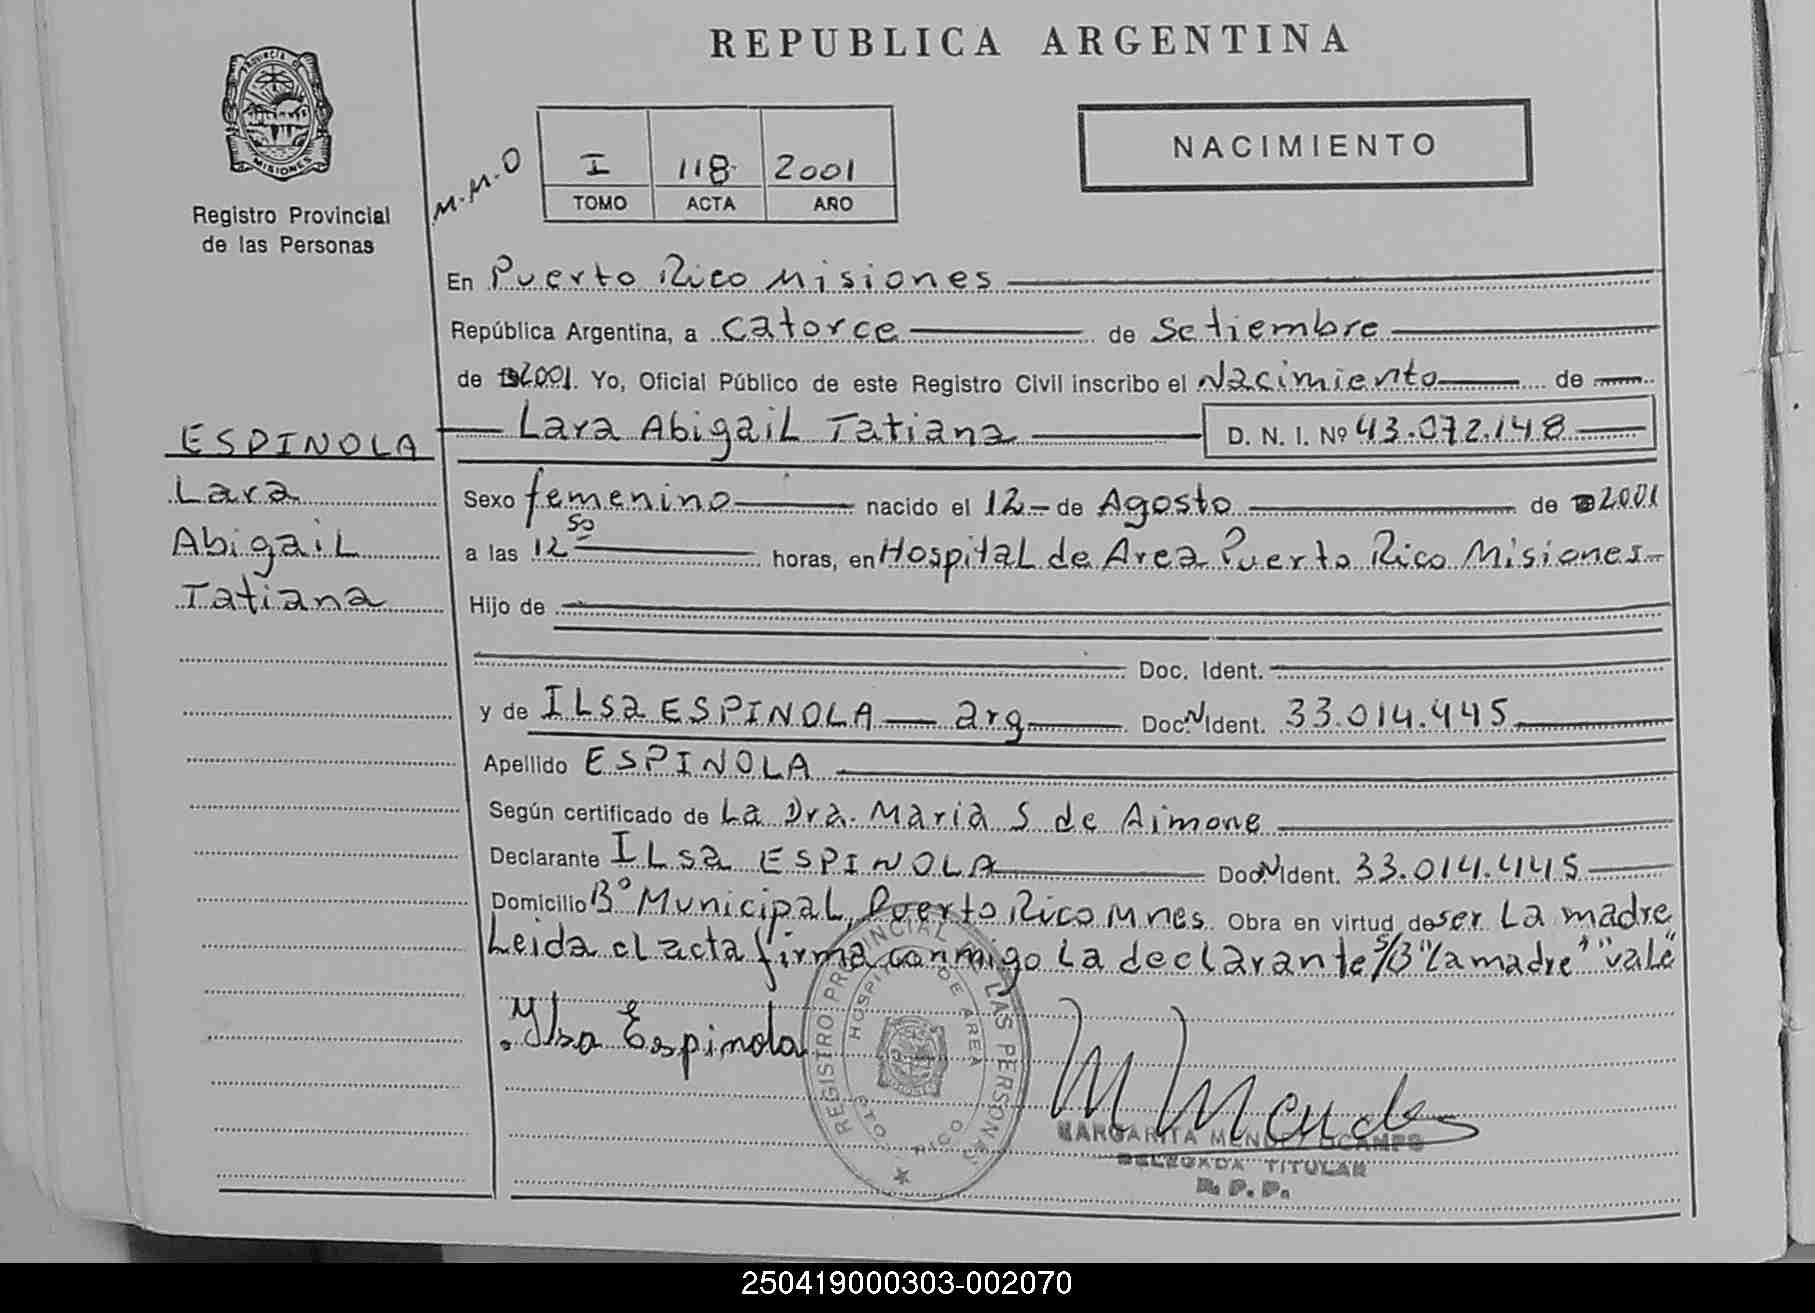 REPUBLICA ARGENTINA
PROVINCIA DE
MISIONES
Registro Provincial
de las Personas
M.M.O
I 118 2001
TOMO ACTA AÑO
NACIMIENTO
En Puerto Rico Misiones
República Argentina, a catorce de Setiembre
de 2001. Yo, Oficial Público de este Registro Civil inscribo el Nacimiento de
Lara Abigail Tatiana D. N. I. Nº 43.072.148
ESPINOLA
Lara
Abigail
Tatiana
Sexo femenino nacido el 12 de Agosto de 2001
a las 12 50 horas, en Hospital de Area Puerto Rico Misiones
Hijo de
Doc. Ident.
y de Ilsa ESPINOLA arg Doc. N Ident. 33.014.445
Apellido ESPINOLA
Según certificado de La Dra. Maria S de Aimone
Declarante Ilsa ESPINOLA Doc. N Ident. 33.014.445
Domicilio Bº Municipal, Puerto Rico Mnes. Obra en virtud de ser La madre
Leida el acta firma conmigo La declarante S/B "La madre" "vale"
Ylsa Espinola
REGISTRO PROVINCIAL DE LAS PERSONAS
HOSPITAL DE AREA
PTO RICO
MARGARITA MENDEZ OCAMPO
DELEGADA TITULAR
R. P. P.
250419000303-002070